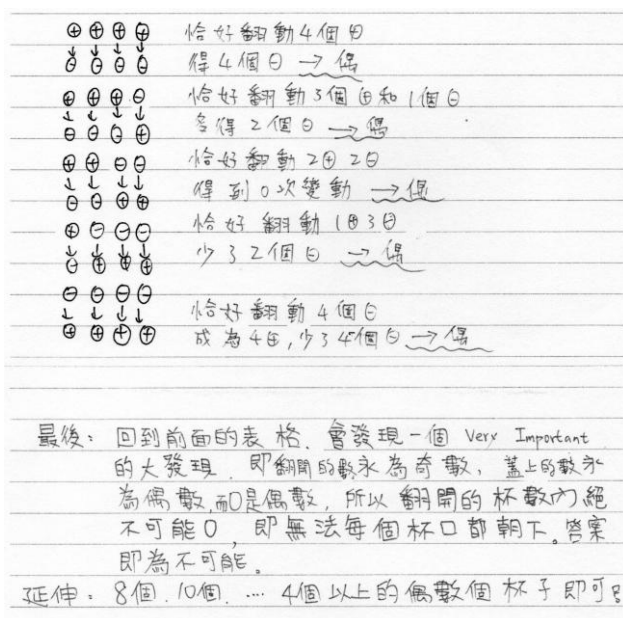 ⊕ ⊕ ⊕ ⊕ 恰好翻動4個⊕
↓ ↓ ↓ ↓
⊖ ⊖ ⊖ ⊖ 得4個⊖ → 偶
⊕ ⊕ ⊕ ⊖ 恰好翻動3個⊕和1個⊖
↓ ↓ ↓ ↓
⊖ ⊖ ⊖ ⊕ 多得2個⊖ → 偶
⊕ ⊕ ⊖ ⊖ 恰好翻動2⊕2⊖
↓ ↓ ↓ ↓
⊖ ⊖ ⊕ ⊕ 得到0次變動 → 偶
⊕ ⊖ ⊖ ⊖ 恰好翻動1⊕3⊖
↓ ↓ ↓ ↓
⊖ ⊕ ⊕ ⊕ 少了2個⊖ → 偶
⊖ ⊖ ⊖ ⊖ 恰好翻動4個⊖
↓ ↓ ↓ ↓
⊕ ⊕ ⊕ ⊕ 成為4⊕,少了4個⊖ → 偶
最後: 回到前面的表格、會發現一個 Very Important
的大發現、即翻開的數永為奇數、蓋上的數永
為偶數,而0是偶數,所以翻開的杯數內絕
不可能0、即無法每個杯口都朝下。答案
即為不可能。
延伸: 8個、10個、.... 4個以上的偶數個杯子即可